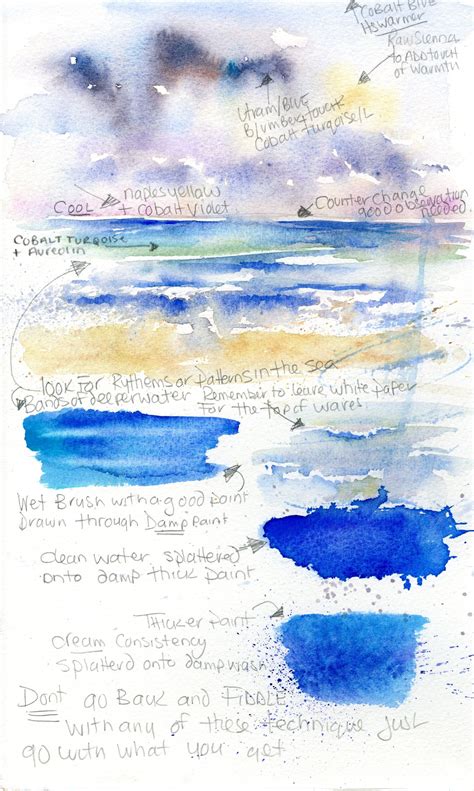 Cobalt Blue
Its warmer
Raw Sienna
to Add touch
of Warmth
Ultram/Blue
B/umber + touch
Cobalt turqoise/L
naples yellow
COOL + Cobalt Violet
Counter Change
good observation
needed
COBALT TURQOISE
+ AUREOLIN
look For Rythems or patterns in the sea
Bands of deeper water Remember to leave white paper
For the top of waves
Wet Brush with a good paint
Drawn through Damp paint
clean water splattered
onto damp thick paint
Thicker paint
cream Consistency
splatterd onto damp wash
Dont go Back and FIDDLE
with any of these technique just
go with what you get